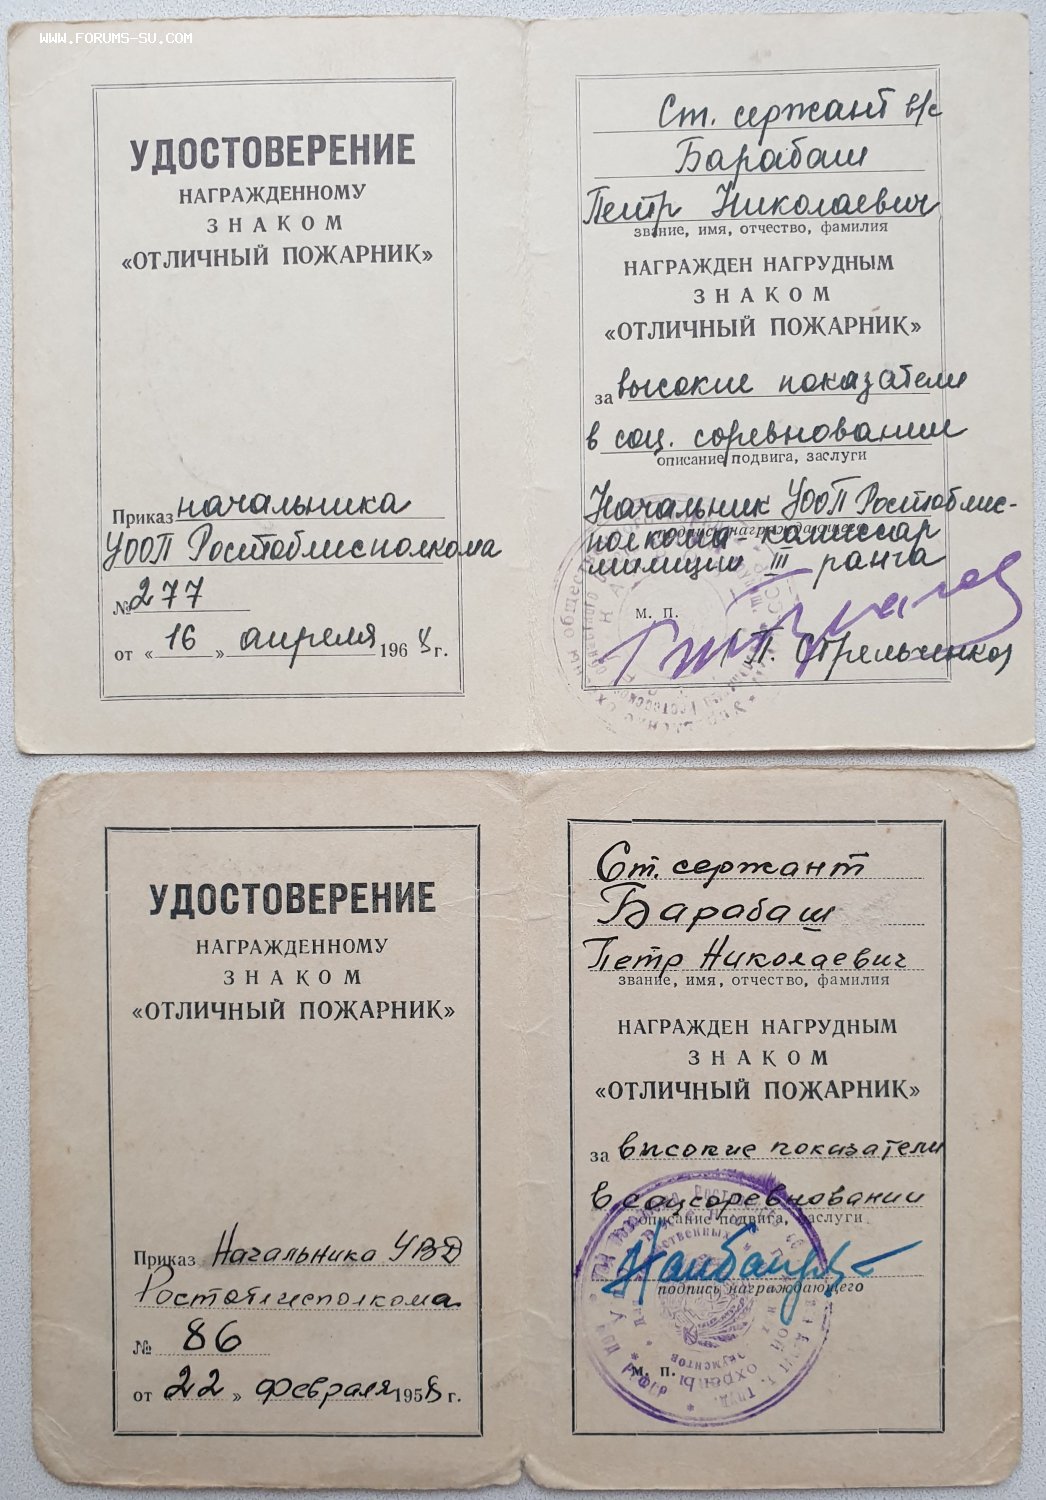 WWW.FORUMS-SU.COM
УДОСТОВЕРЕНИЕ
НАГРАЖДЕННОМУ
ЗНАКОМ
«ОТЛИЧНЫЙ ПОЖАРНИК»
Приказ начальника
УООП Ростоблисполкома
№ 277
от «16» апреля 1968 г.
Ст. сержант в/с
Барабаш
Петр Николаевич
звание, имя, отчество, фамилия
НАГРАЖДЕН НАГРУДНЫМ
ЗНАКОМ
«ОТЛИЧНЫЙ ПОЖАРНИК»
за высокие показатели
в соц. соревновании
описание подвига, заслуги
Начальник УООП Ростоблис-
подпись награждающего
полкома - комиссар
милиции III ранга
м. п.
П. Стрельченко
УДОСТОВЕРЕНИЕ
НАГРАЖДЕННОМУ
ЗНАКОМ
«ОТЛИЧНЫЙ ПОЖАРНИК»
Приказ Начальника УВД
Ростоблисполкома
№ 86
от «22» февраля 1958 г.
Ст. сержант
Барабаш
Петр Николаевич
звание, имя, отчество, фамилия
НАГРАЖДЕН НАГРУДНЫМ
ЗНАКОМ
«ОТЛИЧНЫЙ ПОЖАРНИК»
за высокие показатели
в соцсоревновании
описание подвига, заслуги
подпись награждающего
м. п.